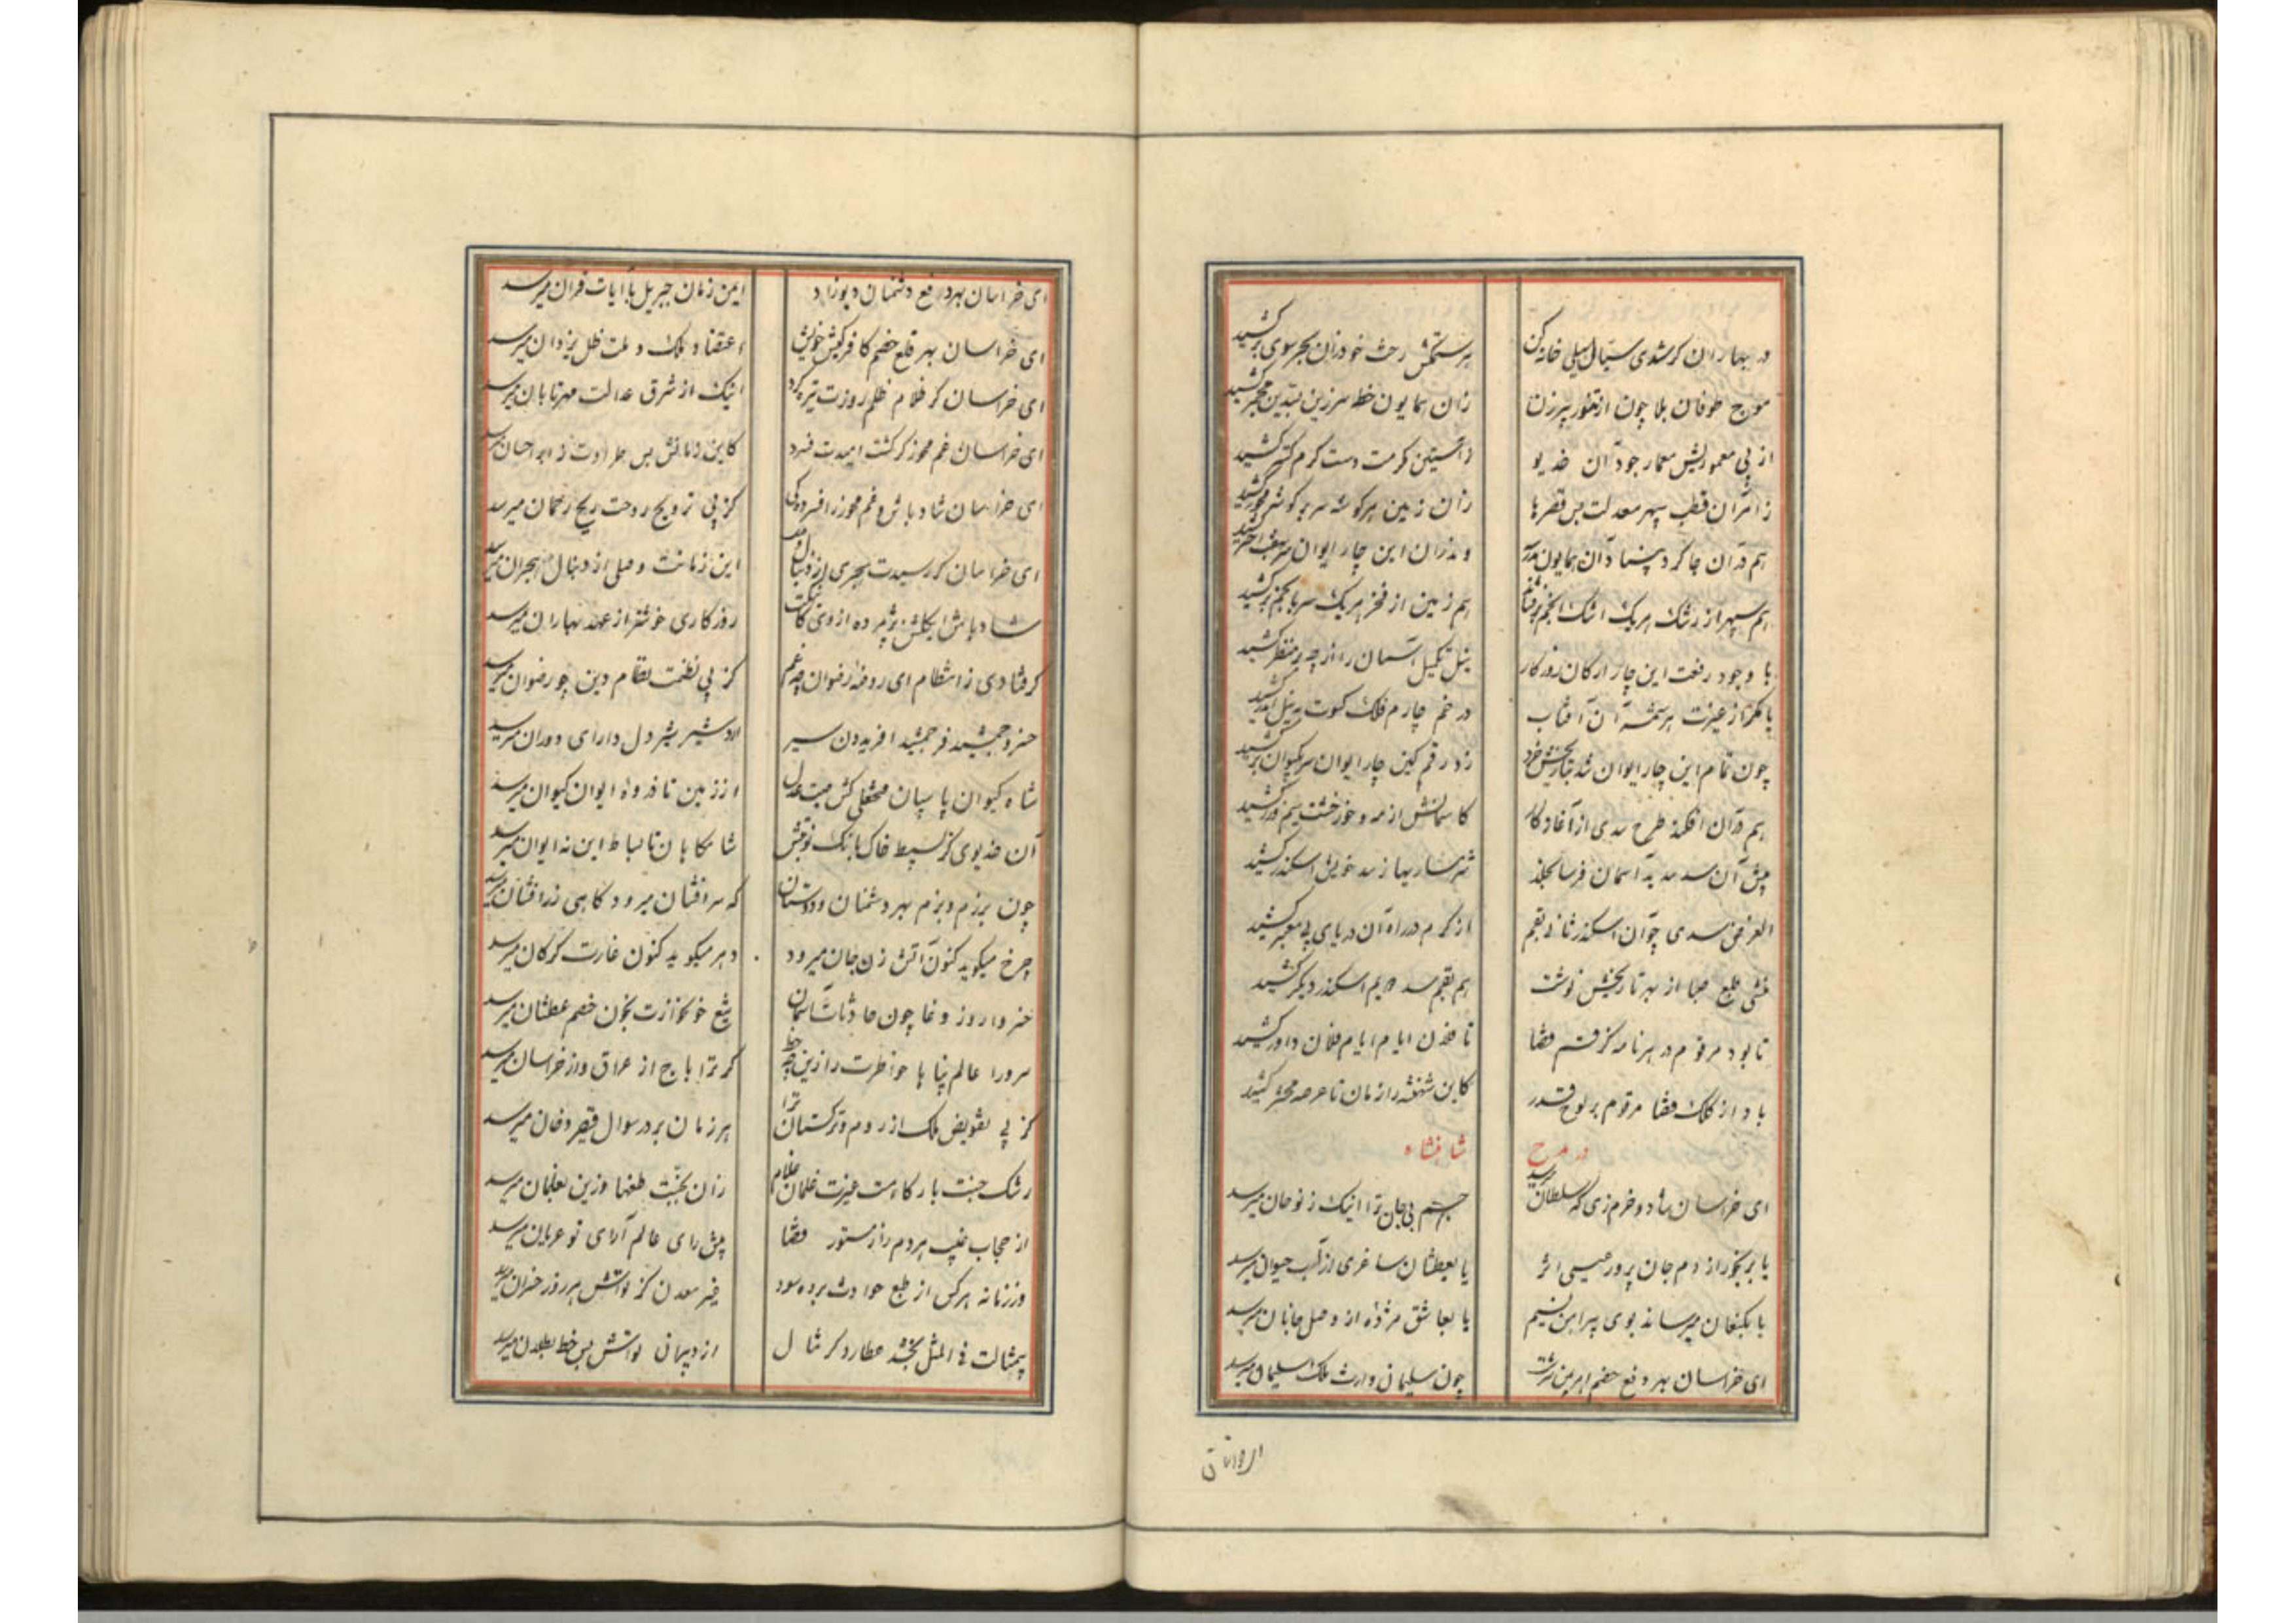 در بهاران کر شدی سیال سیلی خانه کن
بر ستمکش رخت خود زان بحر سوی بر کشید
موج طوفان بلا چون از تنور پیرزن
زان همایون خطه سر زین
از پی معموریش معمار جود آن خدیو
ز آستین کرمت دست کرم کستر کشید
ز امر آن قطب سپهر معدلت بس قصرها
زان زمین هر کوشه سر بر کوشه محور کشید
هم در آن جا کرد بنیاد آن همایون
و مذران این چار ایوان سر
هم سپهر از رشک هر یک اشک انجم بر فشاند
هم زمین از فخر هر یک سر بانجم بر کشید
با وجود رفعت این چار ارکان روزکار
تکمیل آسمان را از چه بر منظر کشید
یا مکر از غیرت هر شمسه آن آفتاب
در خم چارم فلک کسوت به نیل اندر کشید
چون تمام این چار ایوان شد بتاریخش خرد
زد رقم کین چار ایوان سر بکیوان بر کشید
هم در آن افکند طرح سدی از آغاز کار
کاسمانش از مه و خور خشت سیم و زر کشید
پیش آن سد سدید آسمان فرسا
شرمساریها ز سد خویش اسکندر کشید
الغرض سدی چو آن اسکندر ثانی بقم
از کرم در راه آن دریای بی معبر کشید
منشی طبع صبا از بهر تاریخش نوشت
هم بقم سد دیم اسکندر دیکر کشید
تا بود مرقوم در هر نامه کز قسم قضا
تا فلان ایام ایام فلان داور کشید
باد از کلک قضا مرقوم بر لوح قدر
کاین شهنشه را زمان تا عرصه محشر کشید
در مدح شاهنشاه
ای خراسان شاد و خرم زی که سلطان میرسد
جسم بی جان ترا اینک ز نو جان میرسد
یا برنجور از دم جان پرور عیسی اثر
یا بعطشان ساغری از آب حیوان میرسد
یا بکنعان میرساند بوی پیراهن نسیم
یا بعاشق مژده از وصل جانان میرسد
ای خراسان بهر دفع خصم اهرمن سرشت
چون سلیمان وارث ملک سلیمان میرسد
ای خراسان بهر دفع دشمنان دیوزاد
این زمان جبریل با آیات قرآن میرسد
ای خراسان بهر قلع خصم کافر کیش خویش
اعتضاد ملک و ملت ظل یزدان میرسد
ای خراسان کر ظلام ظلم روزت تیره کرد
اینک از شرق عدالت مهر تابان میرسد
ای خراسان غم مخور کر کشت امیدت فسرد
کاین زمانش بس طراوت ز ابر احسان میرسد
ای خراسان شاد باش و غم مخور ز افسردکی
کز پی ترویح روحت ریح رحمان میرسد
ای خراسان کر رسیدت هجری از دنبال وصل
این زمانت وصلی از دنبال هجران میرسد
شاد باش ای کلشن پژمرده از دی کانکت
روزکاری خوشتر از عهد بهاران میرسد
کر فتادی ز انتظام ای روضه رضوان چه غم
کز پی نظمت نظام دین چو رضوان میرسد
خسرو جمشید فر جمشید افریدون سیر
اردشیر شیر دل دارای دوران میرسد
شاه کیوان پاسبان محفلی کش صیت عدل
از زمین تا غرفه ایوان کیوان میرسد
آن خدیوی کز بسیط خاک بانک نوبتش
شامکاهان تا بساط این نه ایوان میرسد
چون برزم و بزم بهر دشمنان و دوستان
که سرافشان میرود کاهی زرافشان میرسد
چرخ میکوید کنون آتش زن جان میرود
دهر میکوید کنون غارت کر کان میرسد
خسروا روز وغا چون حادثات آسمان
تیغ خونخوارت بخون خصم عطشان میرسد
سرورا عالم پناها خاطرت را زین چه حظ
کر ترا باج از عراق و از خراسان میرسد
کز پی تفویض ملک از روم و ترکستان ترا
هر زمان بر در سوال قیصر و خان میرسد
رشک جنت بارکاهت غیرت غلمان غلام
زان بجنت طعنها وزین بغلمان میرسد
از حجاب غیب هر دم راز مستور قضا
پیش رای عالم آرای تو عریان میرسد
وز زمانه هر کس از طبع حوادث برده سود
غیر معدن کز نوالش هر روز خسران میرسد
بیمثالت فی المثل بخشد عطارد کر مثال
از دیوانی نوالش بس خط بطلان میرسد